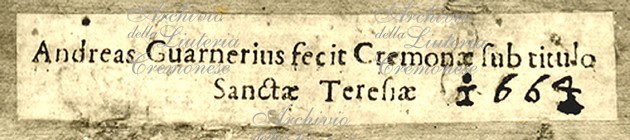 Andreas Guarnerius fecit Cremonæ ſub titulo
Sanctæ Tereſiæ 1664
Archivio della Liuteria Cremonese
Archivio della Liuteria Cremonese
Archivio